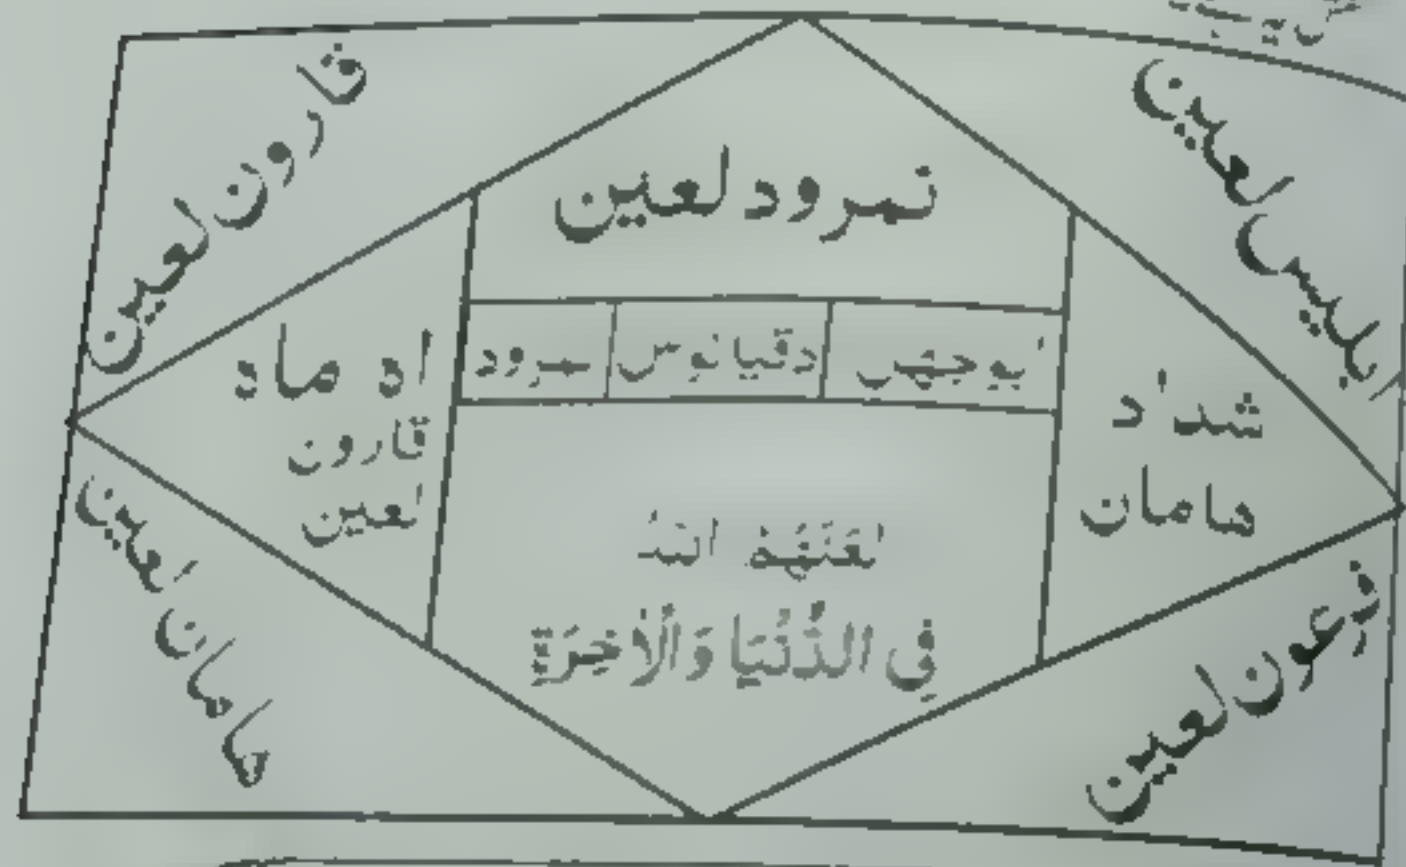 قارون لعین
ابلیس لعین
نمرود لعین
ابوجهل
دقیانوس
نمرود
شداد
هامان
اد ماد
قارون
لعین
لَعَنَهُمُ اللهُ
فِی الدُّنْیَا وَالْاٰخِرَةِ
هامان لعین
فرعون لعین